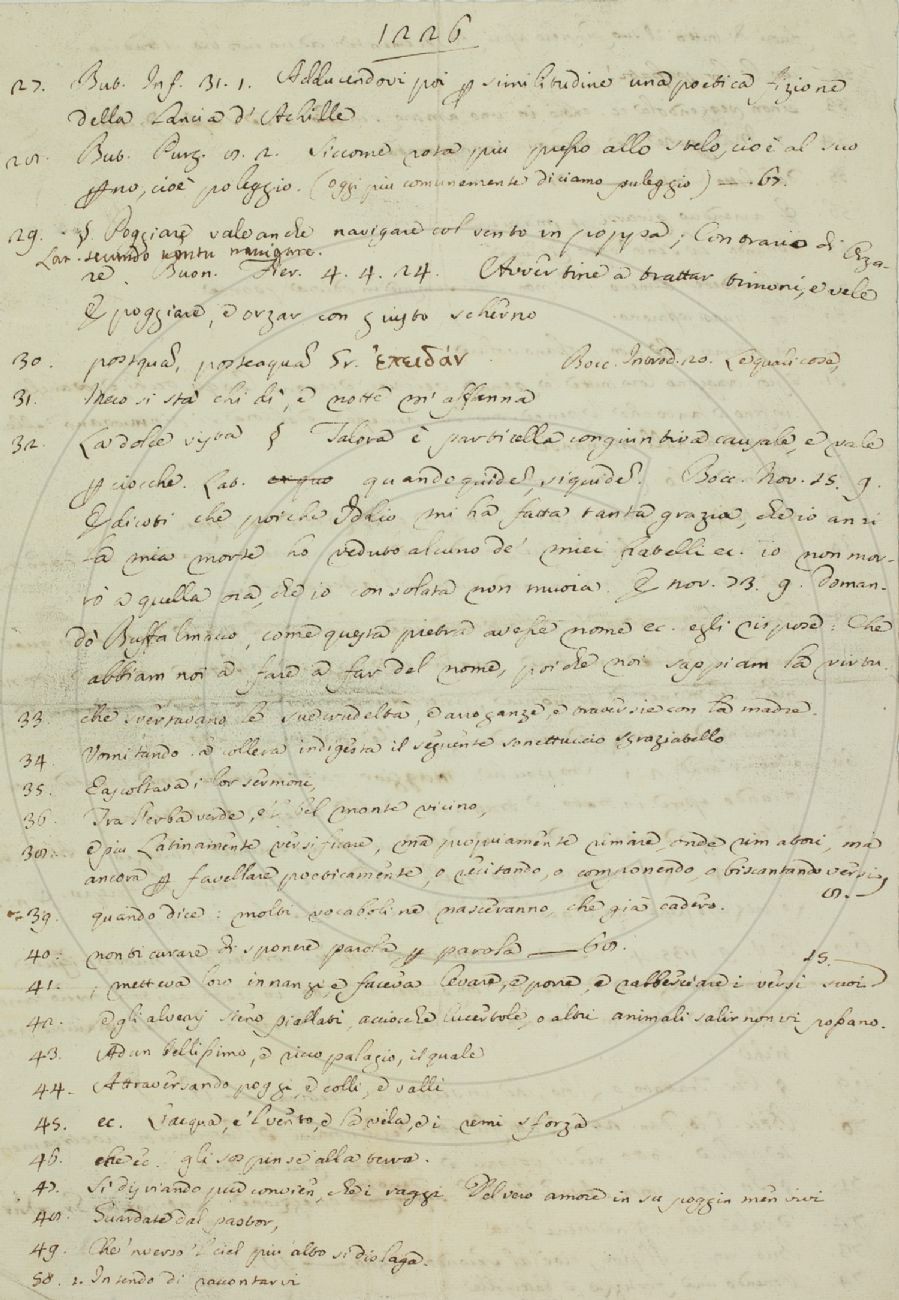 1226
27. But. Inf. 31. 1. Adducendovi poi ꝑ similitudine una poetica fizione
della Lancia d' Achille
28. But. Purg. 8. 2. Siccome rota più presso allo stelo, cioè al suo
ꝑno, cioè poleggio. (oggi più comunemente diciamo puleggio) — 67.
29. § Poggiare vale anche navigare col vento in poppa; Contrario di Orza-
Lat. secundo ventu navigare.
re. Buon. Fier. 4. 4. 24. Avvertine a trattar timoni, e vele
E poggiare, e orzar con giusto scherno
30. postquã, posteaquã Gr. ἐπειδάν Bocc. Introd. 20. Le quali cose,
31. Meco si sta chi dì, e notte m' affanna
32. La dolce vista § Talora è particella congiuntiva causale, e vale
ꝑciocche. Lat. ex quo quandoquidẽ, siquidẽ. Bocc. Nov. 15. 9.
E dicoti che poiche Iddio mi ha fatta tanta grazia, che io anzi
la mia morte ho veduto alcuno de' miei fratelli ec. io non mor-
rò a quella ora, che io consolata non muoia. E nov. 73. 9. Doman-
dò Buffalmacco, come questa pietra avesse nome ec. egli rispose: Che
abbiam noi a fare a far del nome, poiche noi sappiam la virtu.
33. che sventavano le sue crudeltà, e arroganze, e traversie con la madre.
34. Vomitando a collera indigesta il seguente sonettuccio sgraziatello
35. E ascoltava i lor sermoni,
36. Tra l'erba verde, e 'l bel monte vicino,
38. e più Latinamente versificare, ma propriamente rimare, onde rimatori, ma
ancora ꝑ favellare poeticamente, o recitando, o componendo, o biscantando versi
8.
39. quando dice: molti vocaboli ne nasceranno, che già cadero.
40. non ti curare di sponere parola ꝑ parola — 68.
15.
41. ; metteva loro innanzi, e faceva levare, e porre, e rabberciare i versi suoi
42. e gli alvearj sieno piallati, acciocchè lucertole, o altri animali salir non vi possano.
43. Ad un bellissimo, e ricco palagio, il quale
44. Attraversando poggi, e colli, e valli
45. ec. L'acqua, e 'l vento, e la vela, e i remi sforza.
46. che ec. gli sospinse alla terra.
47. Sì disviando pur convien, che i raggi Del vero amore in su poggin men vivi
48. Guardate dal pastor,
49. Che 'nverso 'l ciel più alto si dislaga.
50. 1. Intendo di raccontarvi